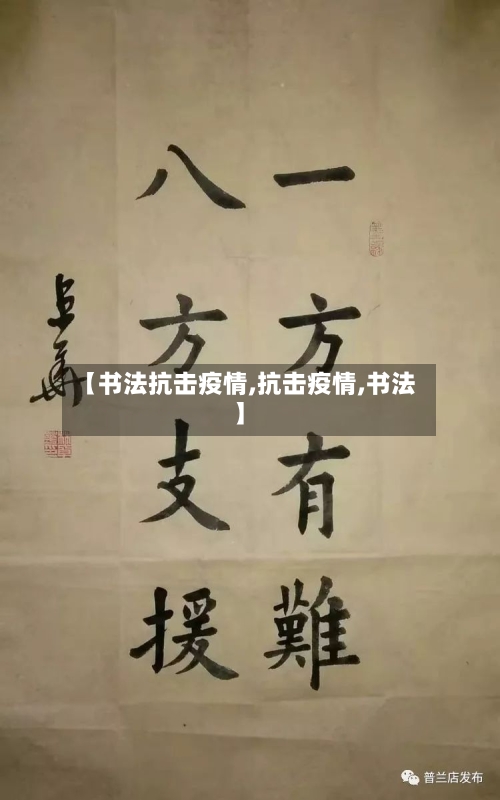 一方有難
八方支援
【书法抗击疫情,抗击疫情,书法
】
普兰店发布